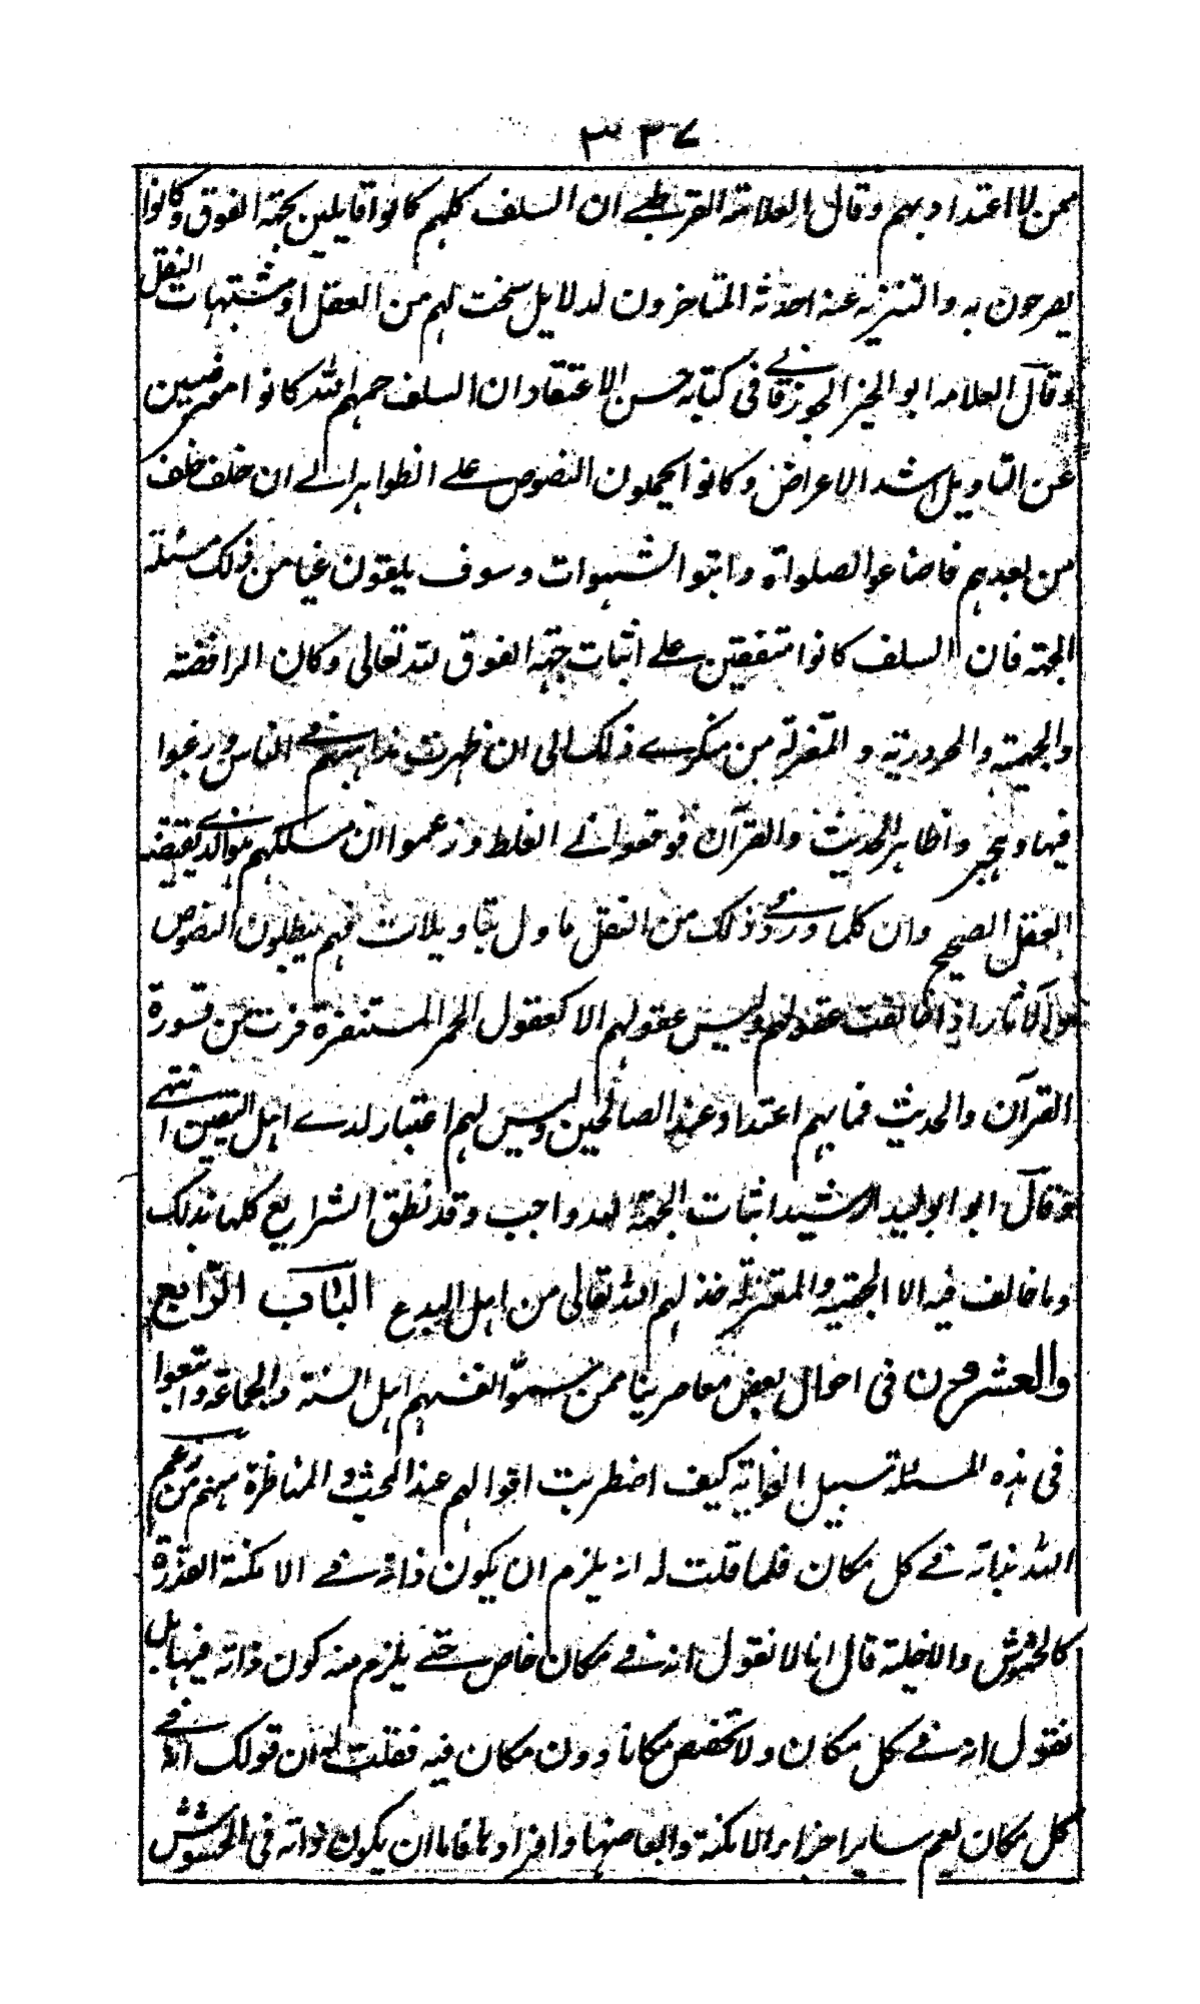 ٣٣٧
ممن لا اعتداد بهم وقال العلامة القرطبي ان السلف كلهم كانوا قايلين بجهة الفوق وكانوا
يصرحون به والتنزيه عنه احدثه المتاخرون لدلايل سخت لهم من العقل او مشتبهات النقل
وقال العلامه ابو الخير الجوزقاني في كتابه حسن الاعتقاد ان السلف رحمهم الله كانوا معرضين
عن التاويل اشد الاعراض وكانوا يحملون النصوص على الظواهر الى ان خلف خلف
من بعدهم فاضاعوا الصلواة واتبعوا الشهوات وسوف يلقون غيا من ذلك مسئلة
الجهة فان السلف كانوا متفقين على اثبات جهة الفوق لله تعالى وكان الرافضة
والجهمية والحرورية والمعتزلة من منكري ذلك الى ان ظهرت مذاهبهم في الناس ورغبوا
فيها وهجروا ظاهر الحديث والقرآن فوقعوا في الغلط وزعموا ان مسلكهم هو الذي يقتضيه
العقل الصحيح وان كلما ورد في ذلك من النقل ماول بتاويلات فهم يبطلون النصوص
والآثار اذا خالفت عقولهم وليس عقولهم الا كعقول الحمر المستنفرة فرت من قسورة
القرآن والحديث فما بهم اعتداد عند الصالحين وليس لهم اعتبار لدى اهل اليقين انتهى
وقال ابو الوليد الرشيد اثبات الجهة لله واجب وقد نطق الشرايع كلها بذلك
وما خالف فيه الا الجهمية والمعتزلة خذلهم الله تعالى من اهل البدع الباب الرابع
والعشرون في احوال بعض معاصرينا ممن سموا انفسهم اهل السنة والجماعة واتبعوا
في هذه المسئلة سبيل الغواية كيف اضطربت اقوالهم عند البحث والمناظرة منهم من زعم ان
الله بذاته في كل مكان فلما قلت له انه يلزم ان يكون ذاته في الامكنة القذرة
كالحشوش والاخلية قال انا لا نقول انه في مكان خاص حتى يلزم منه كون ذاته فيها بل
نقول انه في كل مكان ولا تخصص مكانا دون مكان فيه فقلت له ان قولك انه في
كل مكان يعم ساير اجزاء الامكنة وابعاضها وافرادها فاما ان يكون ذاته في الحشوش